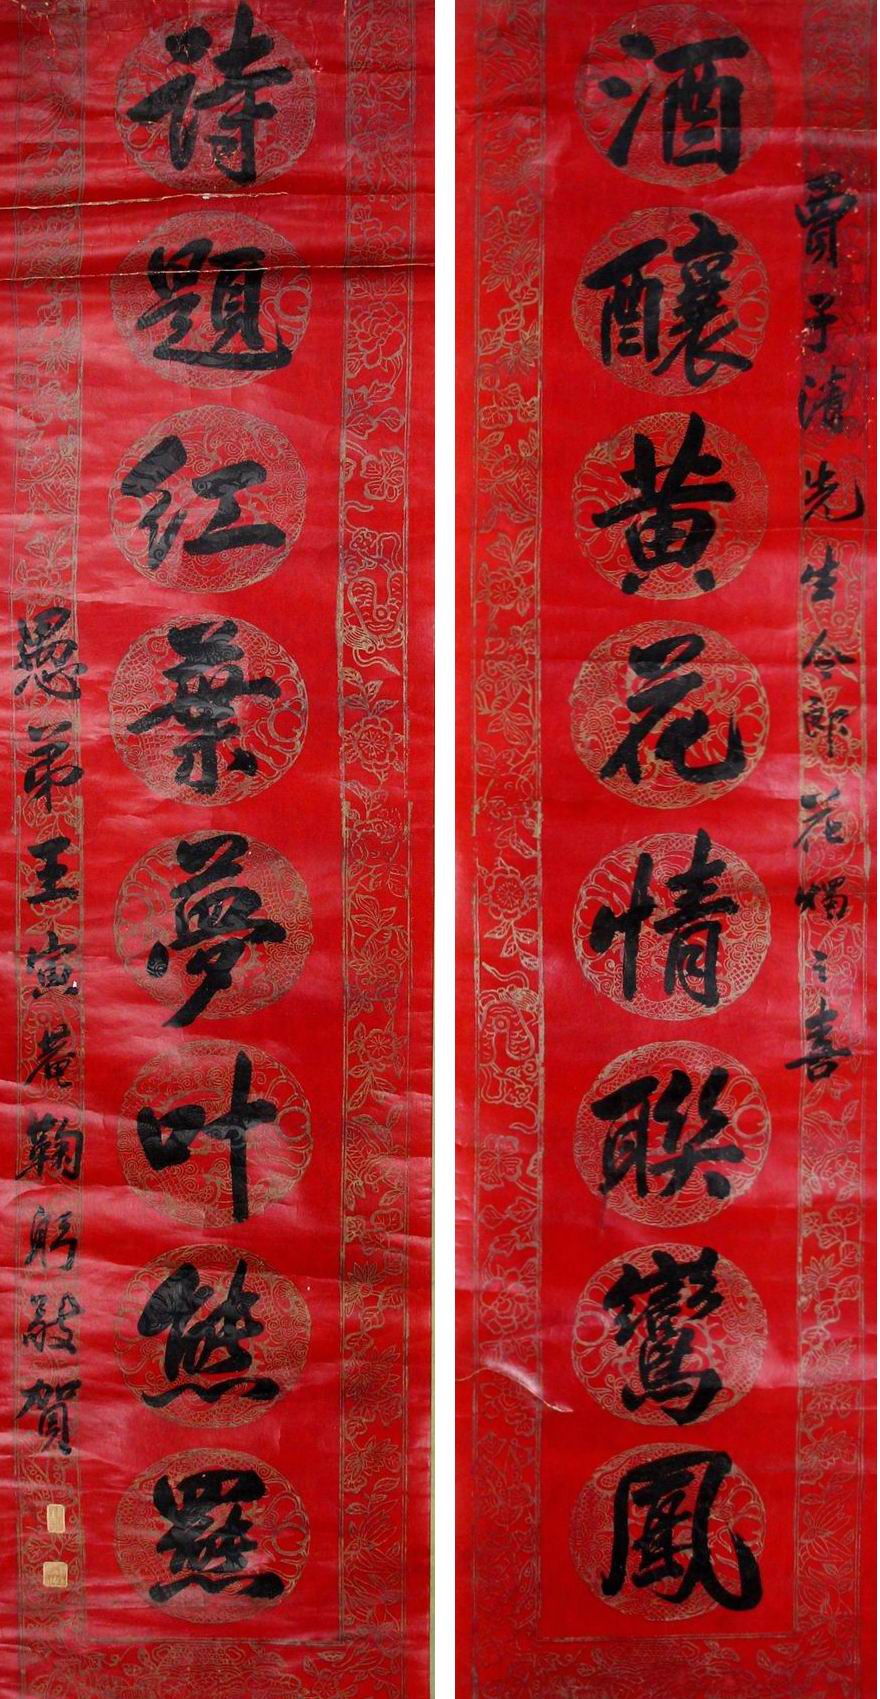 賈子清先生令郎花燭之喜
酒釀黃花情聯鸞鳳
詩題紅葉夢叶熊羆
愚弟王寅菴鞠躬敬賀